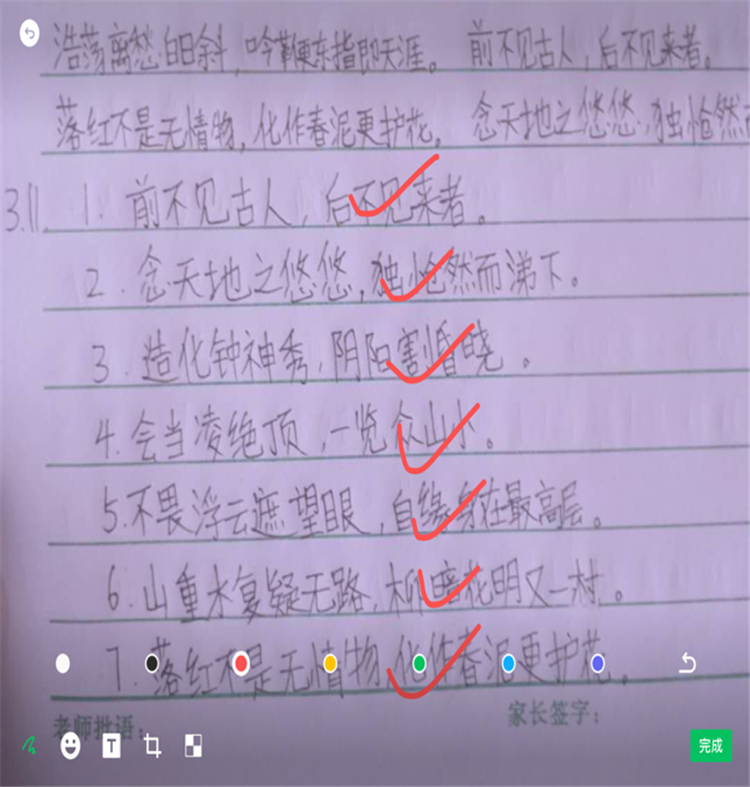 浩荡离愁白日斜,吟鞭东指即天涯。 前不见古人,后不见来者。
落红不是无情物,化作春泥更护花。 念天地之悠悠,独怆然
3.11. 1. 前不见古人,后不见来者。
2. 念天地之悠悠,独怆然而涕下。
3. 造化钟神秀,阴阳割昏晓。
4. 会当凌绝顶,一览众山小。
5. 不畏浮云遮望眼,自缘身在最高层。
6. 山重水复疑无路,柳暗花明又一村。
7. 落红不是无情物,化作春泥更护花。
老师批语: 家长签字:
T 完成